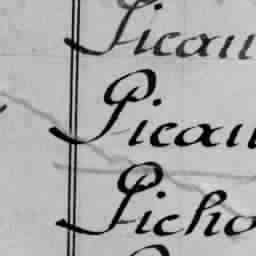 Picau
Picau
Picho